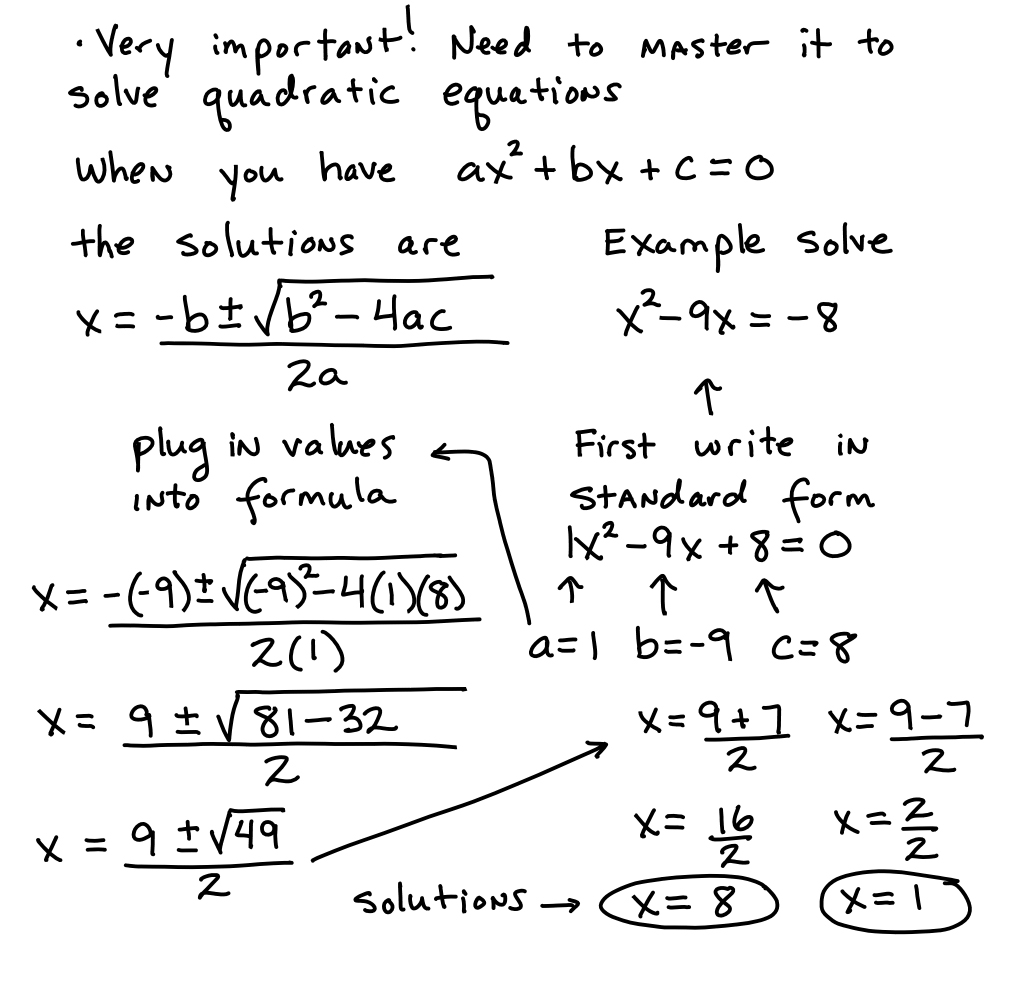 · Very important! Need to master it to
solve quadratic equations
When you have ax² + bx + c = 0
the solutions are
x = (-b ± √(b² - 4ac)) / 2a
Example solve
x² - 9x = -8
↑
First write in
standard form
1x² - 9x + 8 = 0
↑ ↑ ↑
a=1 b=-9 c=8
plug in values
into formula
x = (-(-9) ± √((-9)² - 4(1)(8))) / 2(1)
x = (9 ± √(81 - 32)) / 2
x = (9 ± √49) / 2
x = (9 + 7) / 2 x = (9 - 7) / 2
x = 16/2 x = 2/2
solutions → x = 8 x = 1